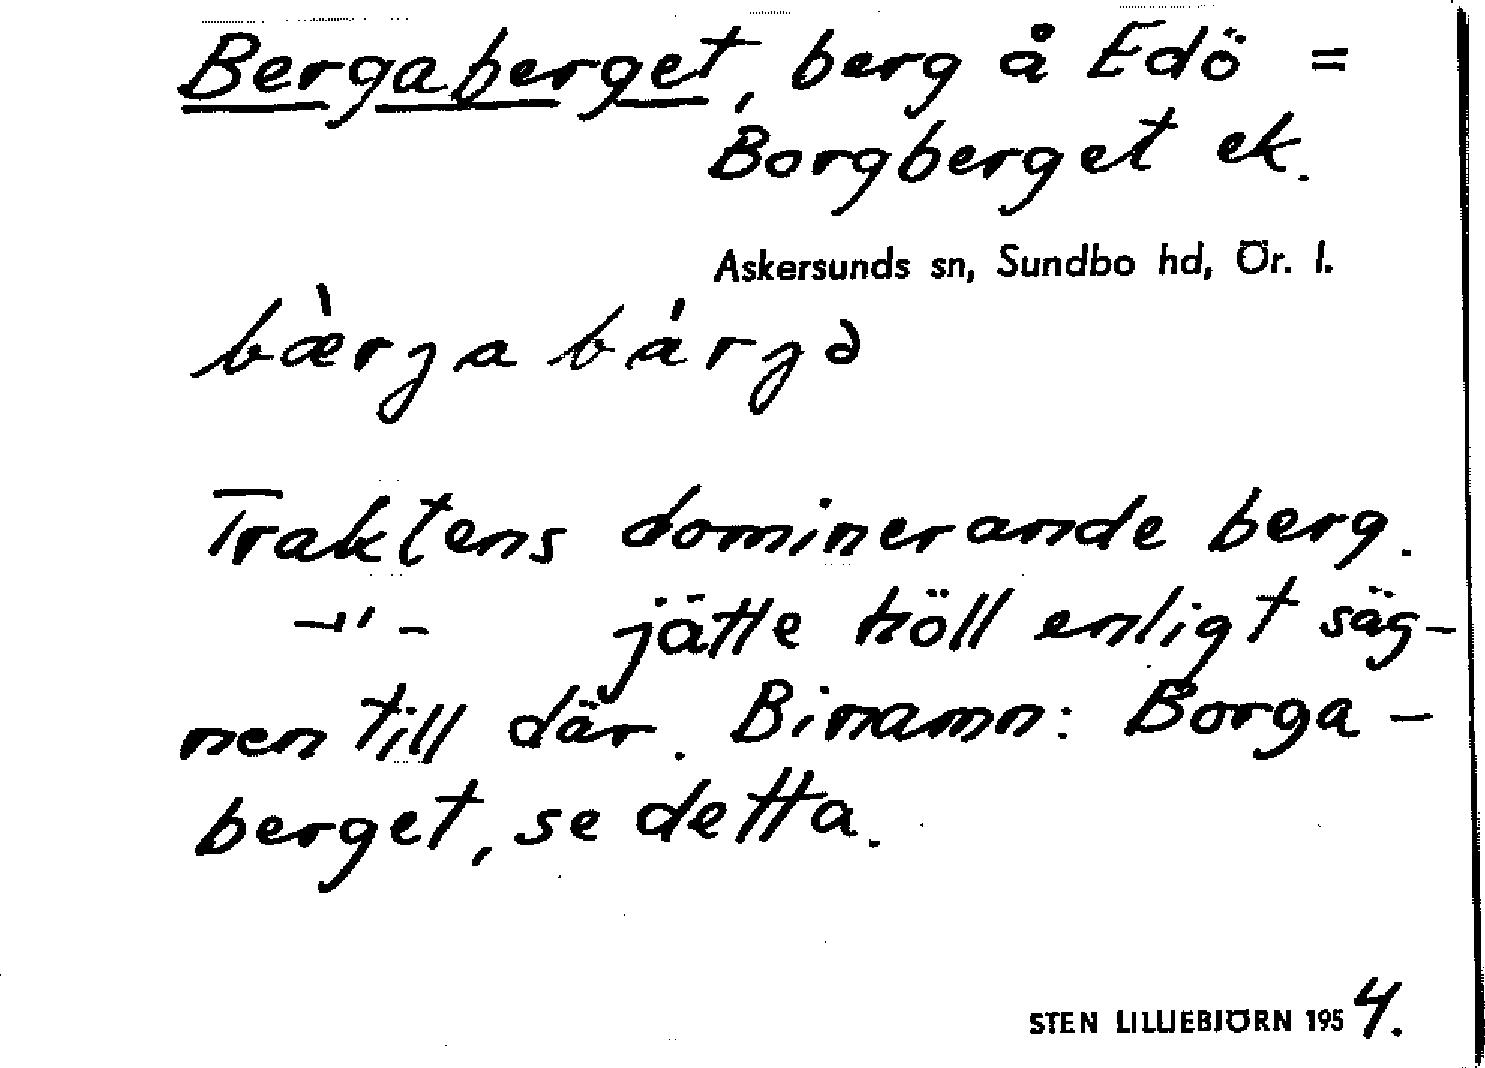 Bergaberget, berg å Edö =
Borgberget ek.
Askersunds sn, Sundbo hd, Ör. l.
bæ̀rga bárgə
Traktens dominerande berg.
—"— jätte höll enligt säg-
nen till där. Binamn: Borga-
berget, se detta.
STEN LILLIEBJÖRN 1954.